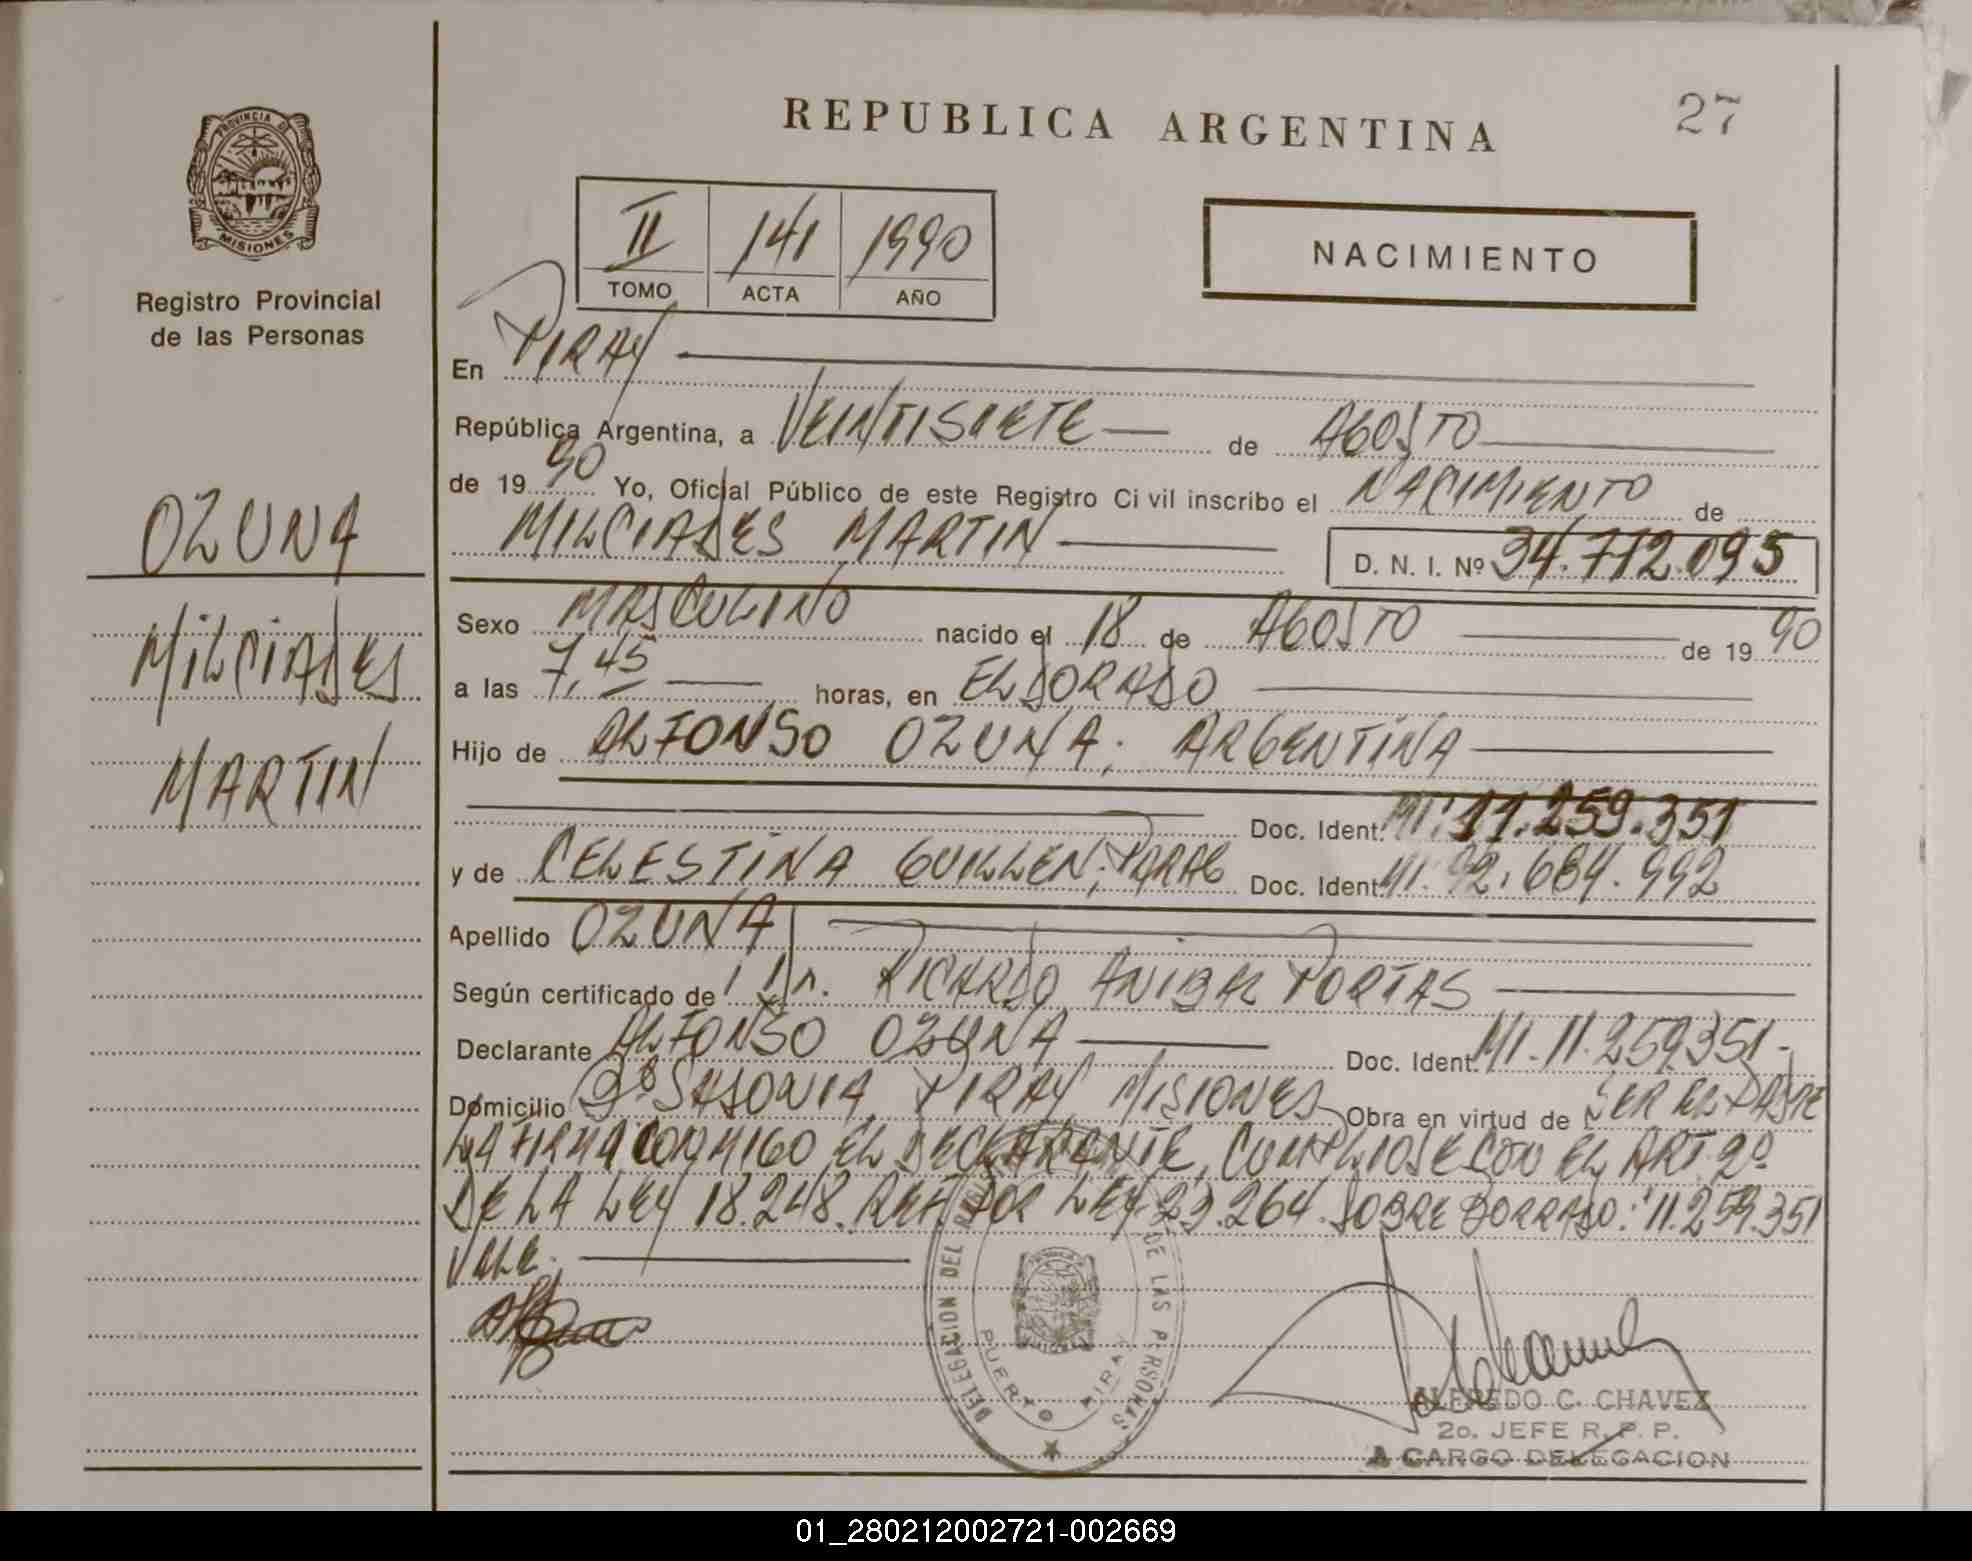 REPUBLICA ARGENTINA
27
PROVINCIA DE
MISIONES
Registro Provincial
de las Personas
II 141 1990
TOMO ACTA AÑO
NACIMIENTO
OZUNA
MILCIADES
MARTIN
En PIRAY
República Argentina, a VEINTISIETE de AGOSTO
de 1990 Yo, Oficial Público de este Registro Civil inscribo el NACIMIENTO de
MILCIADES MARTIN D. N. I. Nº 34.712.095
Sexo MASCULINO nacido el 18 de AGOSTO de 1990
a las 7,45 horas, en ELDORADO
Hijo de ALFONSO OZUNA; ARGENTINA
Doc. Ident. MI. 11.259.351
y de CELESTINA GUILLEN; Doc. Ident. MI. 92.684.992
Apellido OZUNA
Según certificado de Dr. RICARDO ANIBAL PORTAS
Declarante ALFONSO OZUNA Doc. Ident. MI. 11.259351-
Domicilio PIRAY MISIONES Obra en virtud de SER EL PADRE
LA FIRMA CONMIGO EL DECLARANTE, CUMPLIOSE CON EL ART. 2º
DE LA LEY 18.248. REF. POR LEY 23.264. SOBRE BORRADO: "11.259.351
VALE.
DELEGACION DEL DE LAS PERSONAS
PUERTO PIRAY
ALFREDO C. CHAVEZ
2o. JEFE R. P. P.
A CARGO DELEGACION
01_280212002721-002669